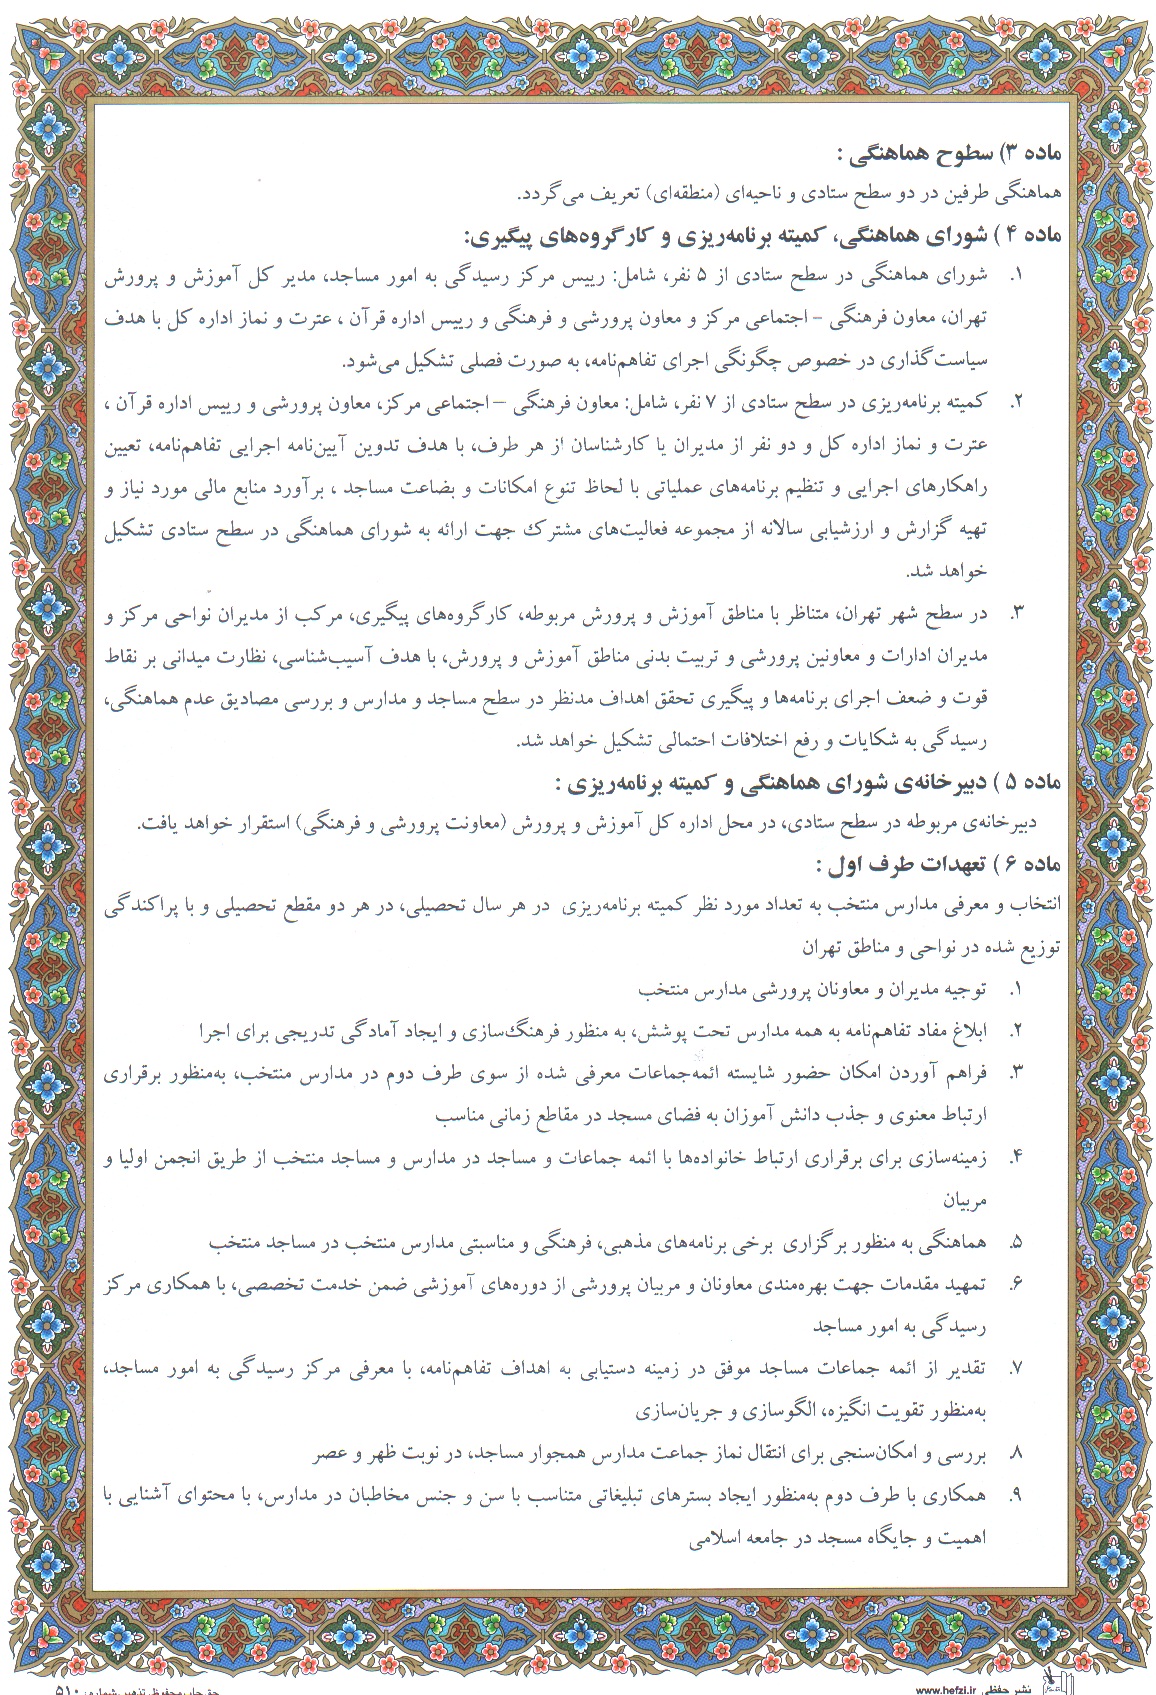 ماده ۳) سطوح هماهنگی :
هماهنگی طرفین در دو سطح ستادی و ناحیه‌ای (منطقه‌ای) تعریف می‌گردد.
ماده ۴ ) شورای هماهنگی، کمیته برنامه‌ریزی و کارگروه‌های پیگیری:
۱. شورای هماهنگی در سطح ستادی از ۵ نفر، شامل: رییس مرکز رسیدگی به امور مساجد، مدیر کل آموزش و پرورش
تهران، معاون فرهنگی – اجتماعی مرکز و معاون پرورشی و فرهنگی و رییس اداره قرآن ، عترت و نماز اداره کل با هدف
سیاست‌گذاری در خصوص چگونگی اجرای تفاهم‌نامه، به صورت فصلی تشکیل می‌شود.
۲. کمیته برنامه‌ریزی در سطح ستادی از ۷ نفر، شامل: معاون فرهنگی – اجتماعی مرکز، معاون پرورشی و رییس اداره قرآن ،
عترت و نماز اداره کل و دو نفر از مدیران یا کارشناسان از هر طرف، با هدف تدوین آیین‌نامه اجرایی تفاهم‌نامه، تعیین
راهکارهای اجرایی و تنظیم برنامه‌های عملیاتی با لحاظ تنوع امکانات و بضاعت مساجد ، برآورد منابع مالی مورد نیاز و
تهیه گزارش و ارزشیابی سالانه از مجموعه فعالیت‌های مشترک جهت ارائه به شورای هماهنگی در سطح ستادی تشکیل
خواهد شد.
۳. در سطح شهر تهران، متناظر با مناطق آموزش و پرورش مربوطه، کارگروه‌های پیگیری، مرکب از مدیران نواحی مرکز و
مدیران ادارات و معاونین پرورشی و تربیت بدنی مناطق آموزش و پرورش، با هدف آسیب‌شناسی، نظارت میدانی بر نقاط
قوت و ضعف اجرای برنامه‌ها و پیگیری تحقق اهداف مدنظر در سطح مساجد و مدارس و بررسی مصادیق عدم هماهنگی،
رسیدگی به شکایات و رفع اختلافات احتمالی تشکیل خواهد شد.
ماده ۵ ) دبیرخانه‌ی شورای هماهنگی و کمیته برنامه‌ریزی :
دبیرخانه‌ی مربوطه در سطح ستادی، در محل اداره کل آموزش و پرورش (معاونت پرورشی و فرهنگی) استقرار خواهد یافت.
ماده ۶ ) تعهدات طرف اول :
انتخاب و معرفی مدارس منتخب به تعداد مورد نظر کمیته برنامه‌ریزی در هر سال تحصیلی، در هر دو مقطع تحصیلی و با پراکندگی
توزیع شده در نواحی و مناطق تهران
۱. توجیه مدیران و معاونان پرورشی مدارس منتخب
۲. ابلاغ مفاد تفاهم‌نامه به همه مدارس تحت پوشش، به منظور فرهنگ‌سازی و ایجاد آمادگی تدریجی برای اجرا
۳. فراهم آوردن امکان حضور شایسته ائمه‌جماعات معرفی شده از سوی طرف دوم در مدارس منتخب، به‌منظور برقراری
ارتباط معنوی و جذب دانش آموزان به فضای مسجد در مقاطع زمانی مناسب
۴. زمینه‌سازی برای برقراری ارتباط خانواده‌ها با ائمه جماعات و مساجد در مدارس و مساجد منتخب از طریق انجمن اولیا و
مربیان
۵. هماهنگی به منظور برگزاری برخی برنامه‌های مذهبی، فرهنگی و مناسبتی مدارس منتخب در مساجد منتخب
۶. تمهید مقدمات جهت بهره‌مندی معاونان و مربیان پرورشی از دوره‌های آموزشی ضمن خدمت تخصصی، با همکاری مرکز
رسیدگی به امور مساجد
۷. تقدیر از ائمه جماعات مساجد موفق در زمینه دستیابی به اهداف تفاهم‌نامه، با معرفی مرکز رسیدگی به امور مساجد،
به‌منظور تقویت انگیزه، الگوسازی و جریان‌سازی
۸. بررسی و امکان‌سنجی برای انتقال نماز جماعت مدارس همجوار مساجد، در نوبت ظهر و عصر
۹. همکاری با طرف دوم به‌منظور ایجاد بسترهای تبلیغاتی متناسب با سن و جنس مخاطبان در مدارس، با محتوای آشنایی با
اهمیت و جایگاه مسجد در جامعه اسلامی
نشر حفظی www.hefzi.ir
حق چاپ محفوظ تذهیب شماره: ۵۱۰